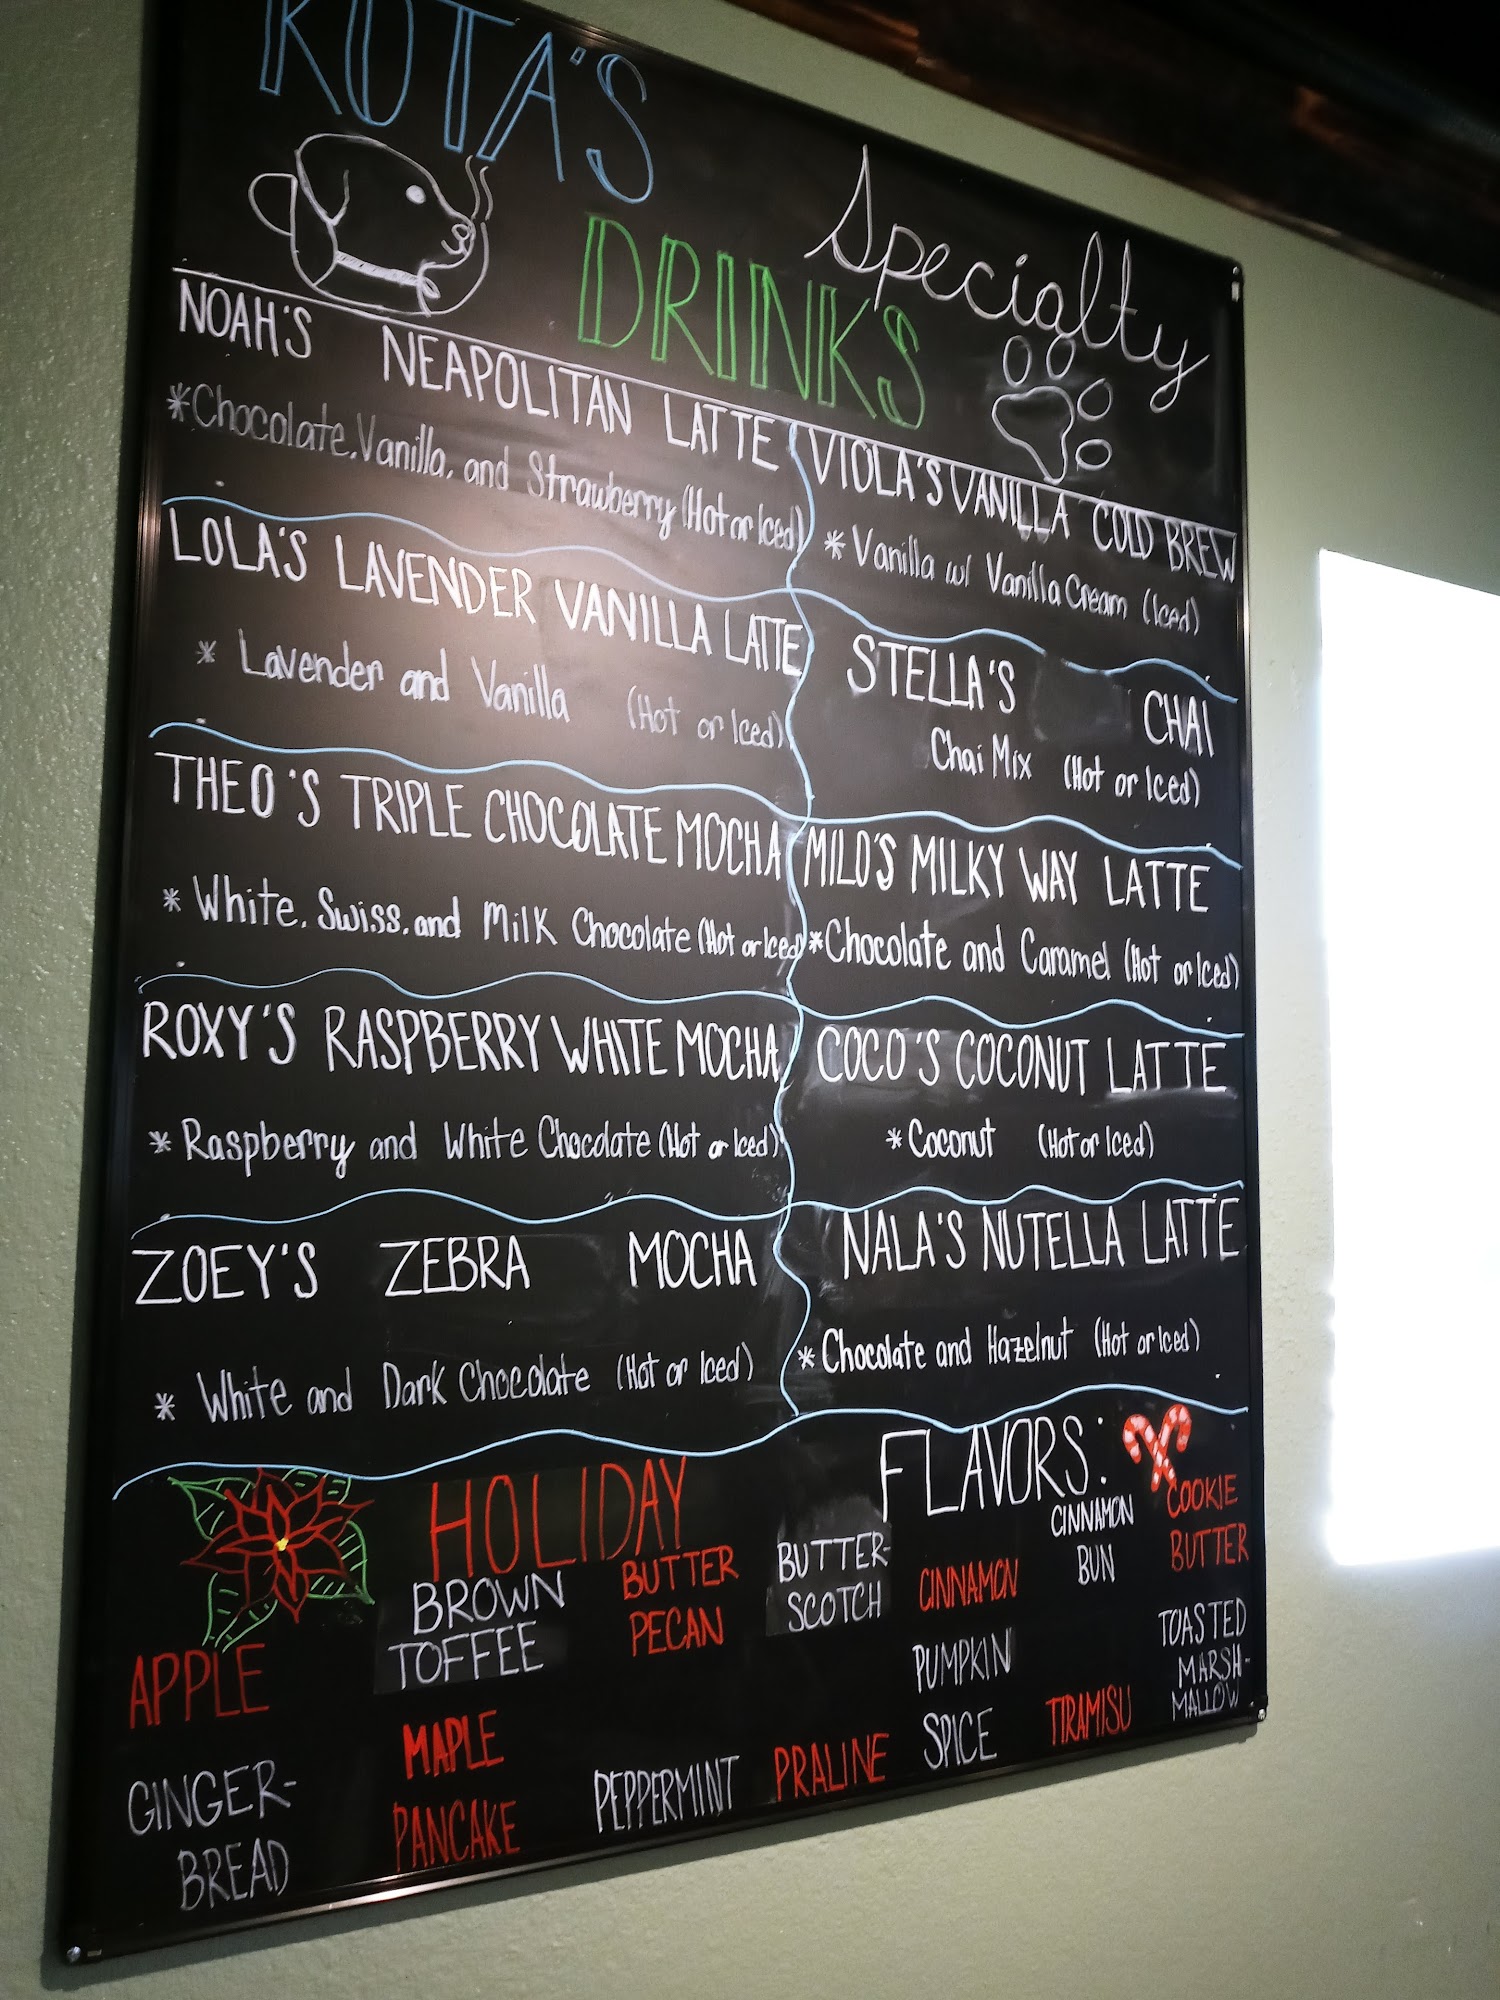 KOTA'S
Specialty
DRINKS
NOAH'S NEAPOLITAN LATTE
*Chocolate, Vanilla, and Strawberry (Hot or Iced)
LOLA'S LAVENDER VANILLA LATTE
* Lavender and Vanilla (Hot or Iced)
THEO'S TRIPLE CHOCOLATE MOCHA
* White, Swiss, and Milk Chocolate (Hot or Iced)
ROXY'S RASPBERRY WHITE MOCHA
* Raspberry and White Chocolate (Hot or Iced)
ZOEY'S ZEBRA MOCHA
* White and Dark Chocolate (Hot or Iced)
VIOLA'S VANILLA COLD BREW
* Vanilla w/ Vanilla Cream (Iced)
STELLA'S CHAI
Chai Mix (Hot or Iced)
MILO'S MILKY WAY LATTE
*Chocolate and Caramel (Hot or Iced)
COCO'S COCONUT LATTE
* Coconut (Hot or Iced)
NALA'S NUTELLA LATTE
* Chocolate and Hazelnut (Hot or Iced)
HOLIDAY FLAVORS:
APPLE
BROWN
TOFFEE
BUTTER
PECAN
BUTTER-
SCOTCH
CINNAMON
CINNAMON
BUN
COOKIE
BUTTER
GINGER-
BREAD
MAPLE
PANCAKE
PEPPERMINT
PRALINE
PUMPKIN
SPICE
TIRAMISU
TOASTED
MARSH-
MALLOW